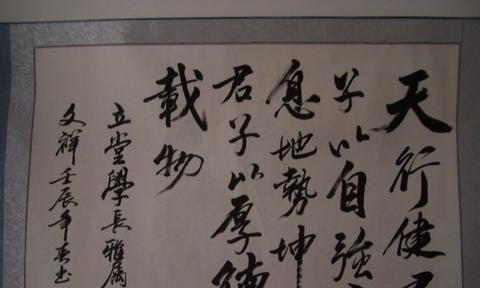 天行健君
子以自强
息地勢坤
君子以厚德
載物
立堂學長雅屬
文祥壬辰年春书